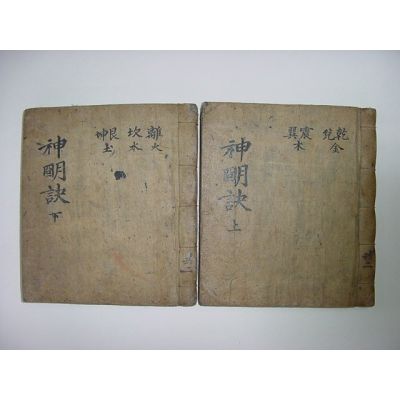 乾兌金
震巽木
神明訣上
離火
坎水
艮坤土
神明訣下